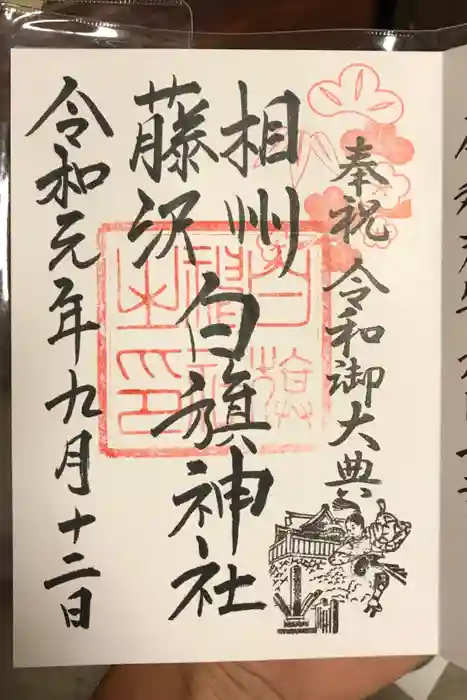 奉祝 令和御大典
相州
藤沢
白旗神社
令和元年九月十二日
白旗
神社
之印